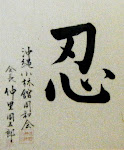 忍
沖縄小林館
会長 仲里周五郎